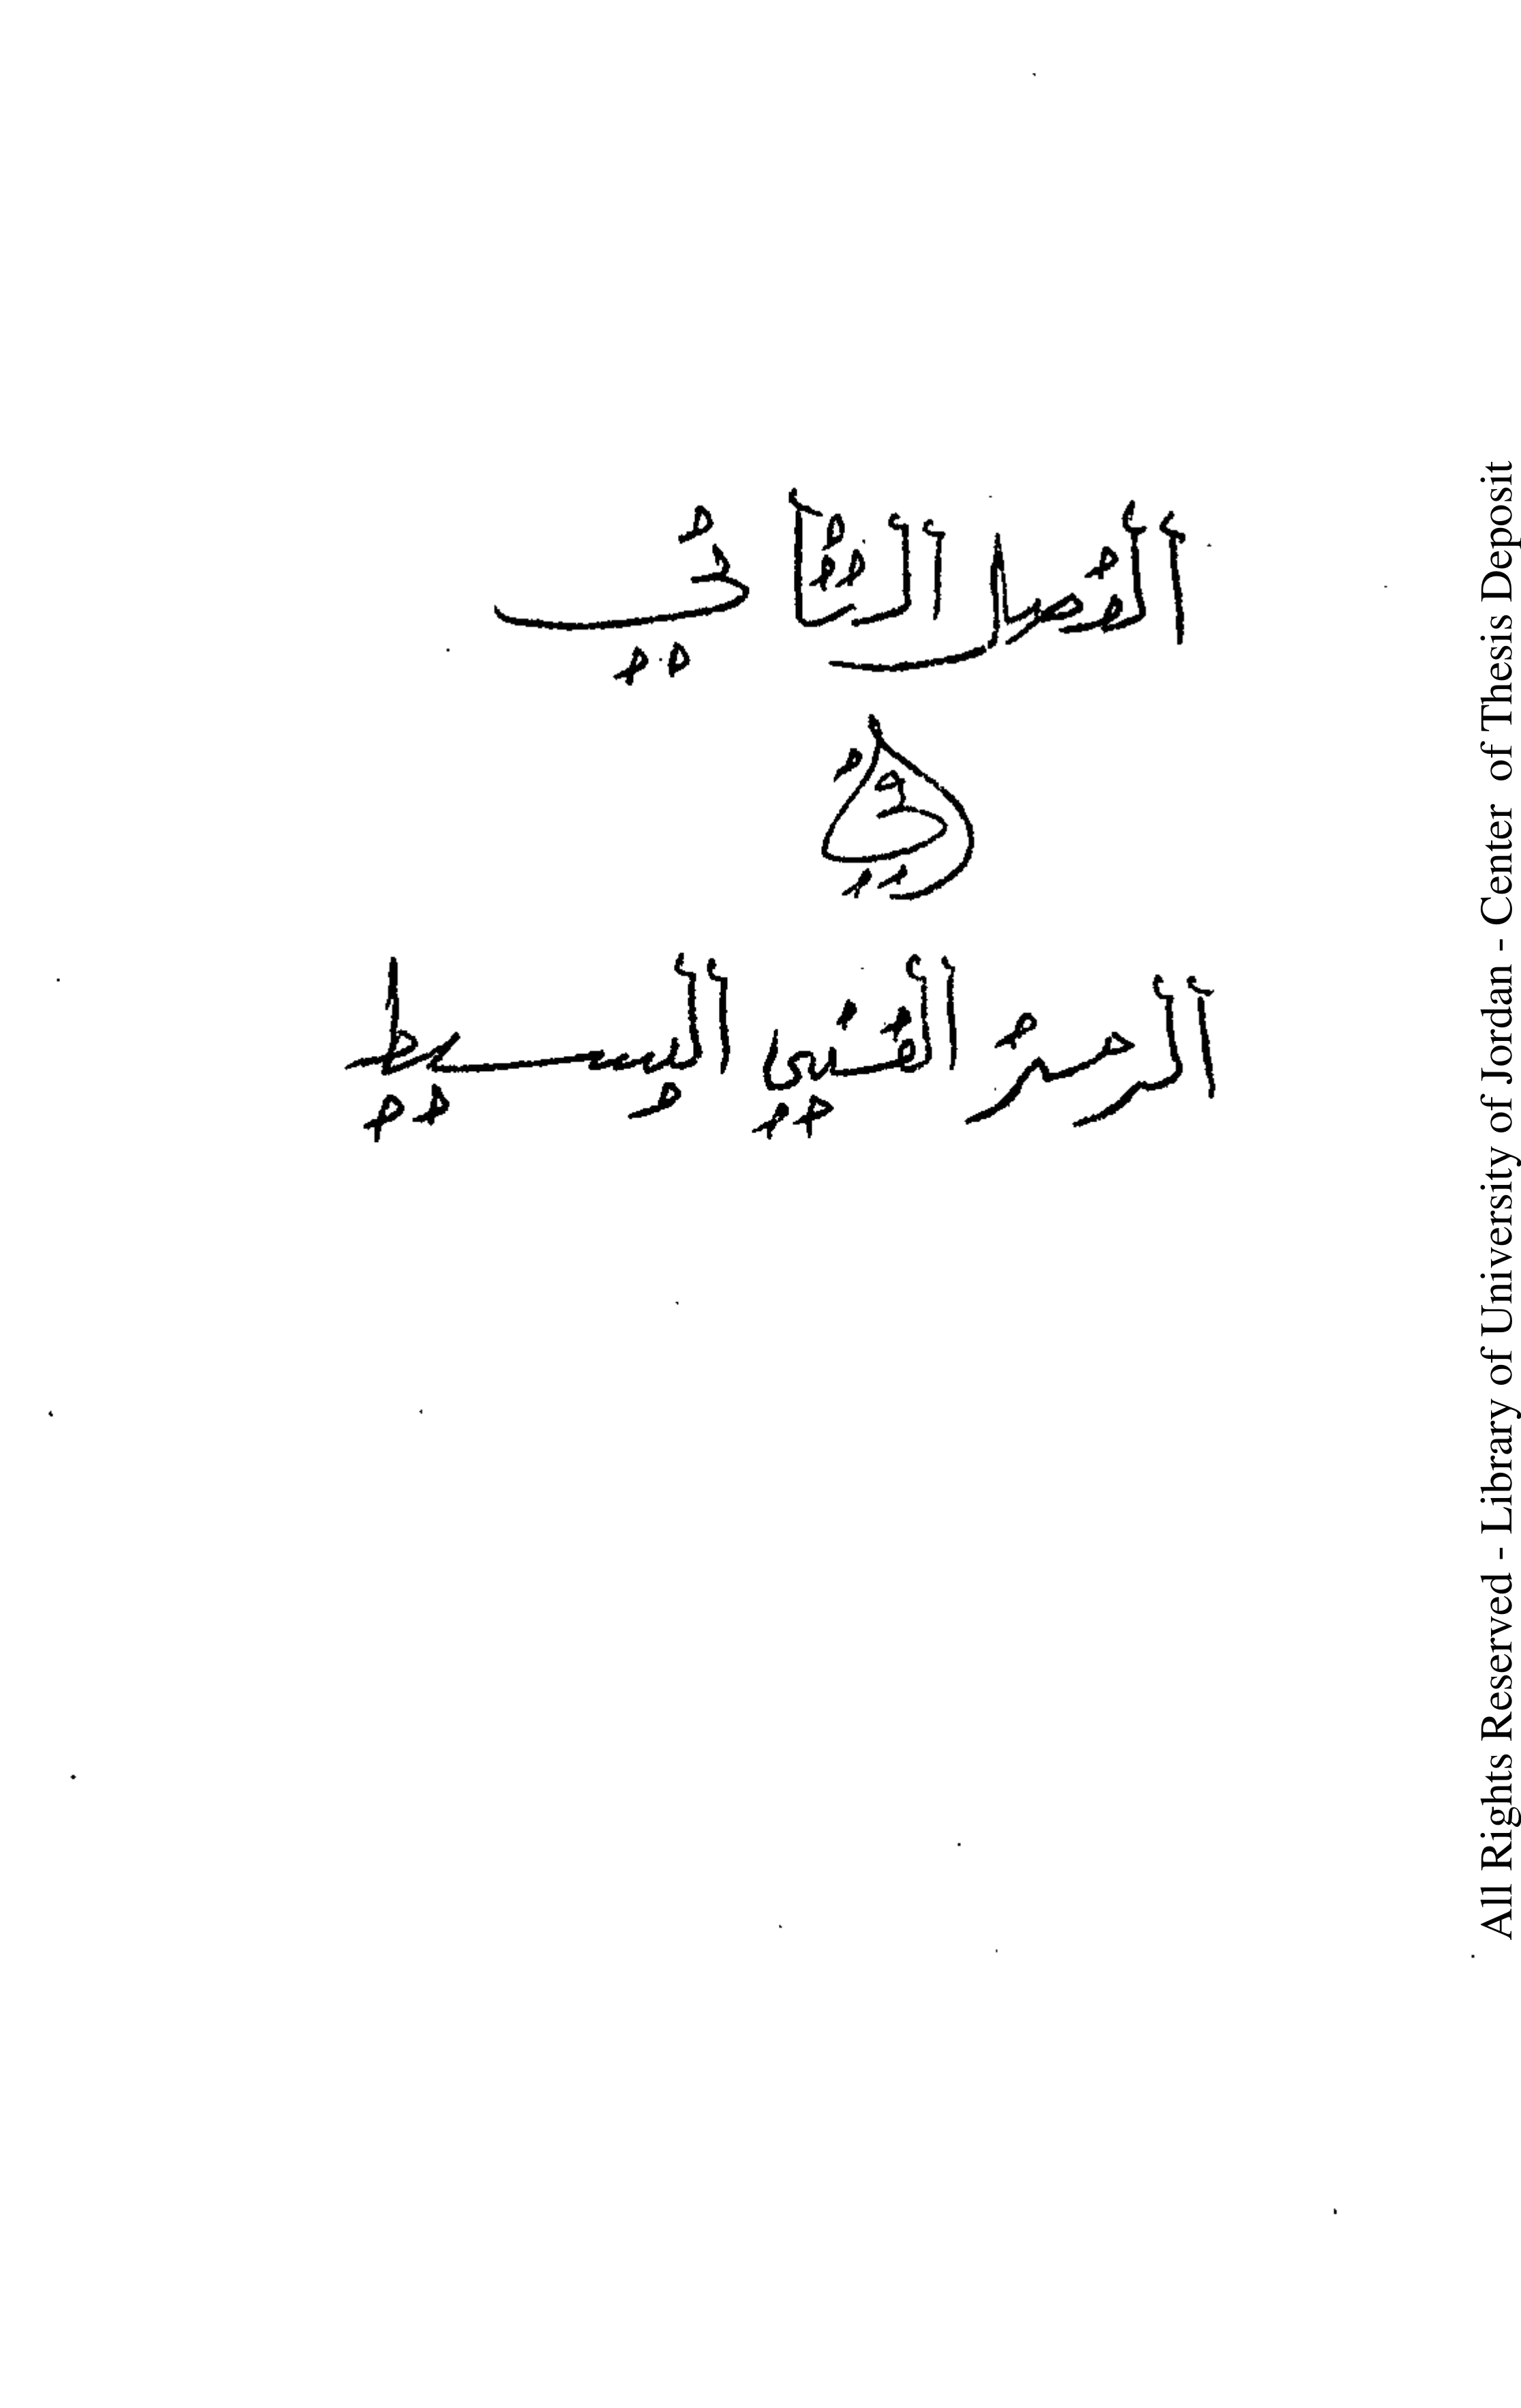 الفصل الثاني
في
الرمز الفني البسيط
All Rights Reserved - Library of University of Jordan - Center of Thesis Deposit